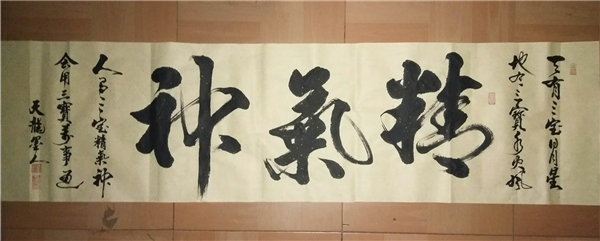 天有三宝日月星
地有三寶水火風
精氣神
人有三宝精氣神
会用三寶萬事通
天龍人